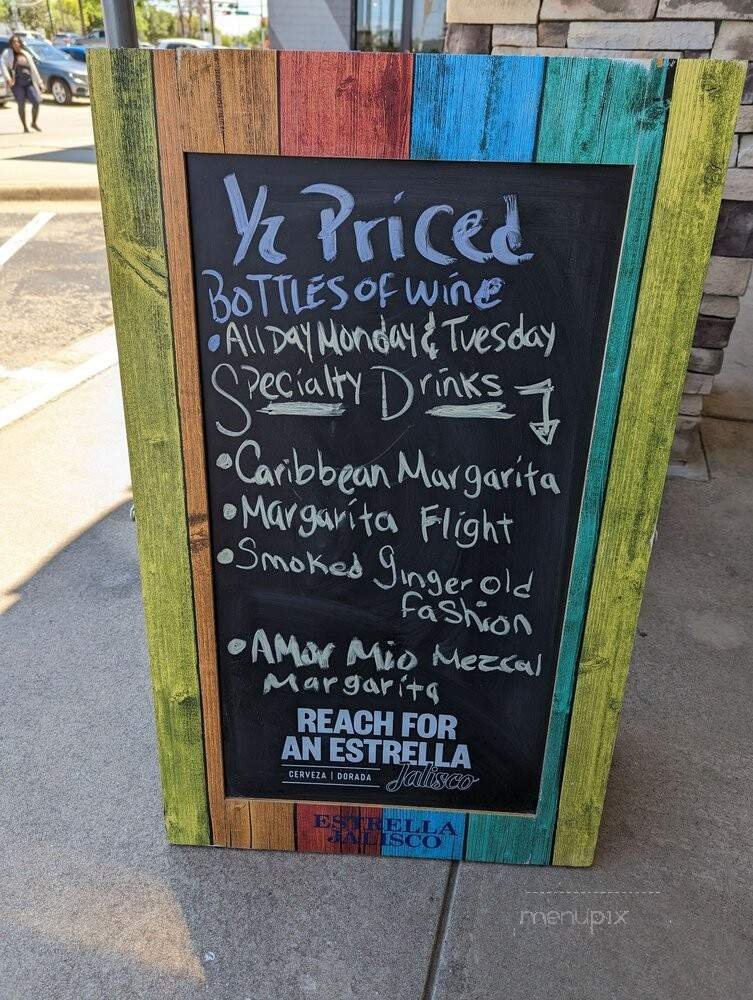 1/2 Priced
BOTTLES OF WINE
• All Day Monday & Tuesday
Specialty Drinks
• Caribbean Margarita
• Margarita Flight
• Smoked Ginger old
Fashion
• AMor Mio Mezcal
Margarita
REACH FOR
AN ESTRELLA
CERVEZA | DORADA Jalisco
ESTRELLA
JALISCO
menupix